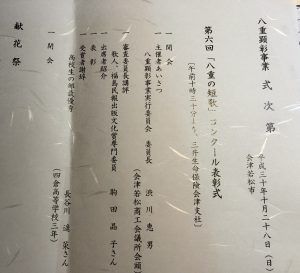 八重顕彰事業 式次第
平成三十年十月二十八日（日）
会津若松市
第六回「八重の短歌」コンクール表彰式
（午前十時三十分より、三井生命保険会津支社）
一 開会
一 主催者あいさつ
八重顕彰事業実行委員会 委員長 渋川恵男
（会津若松商工会議所会頭
一 審査委員長講評
歌人、福島民報出版文化賞専門委員 駒田晶子さん
一 出席者紹介
一 表彰
一 受賞者謝辞
高校生の部最優秀 長谷川遥菜さん
（四倉高等学校三年）
一 閉会
献花祭